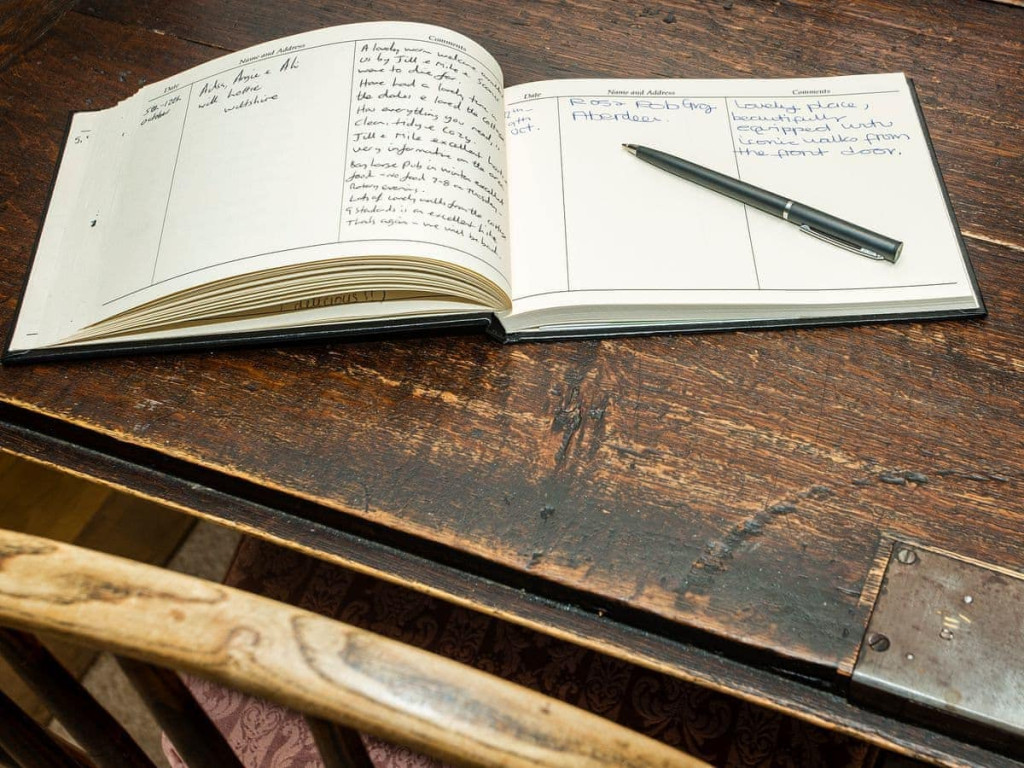 Date Name and Address Comments
5th - 12th
October
Angie & Ali
with Lottie
Wiltshire
A lovely warm welcome
us by Jill & Mike &
were to die for.
Have had a lovely time
the dales & loved the cottage
Has everything you need, is
clean, tidy & cozy.
Jill & Mike excellent hosts
very informative on the area
Bay Horse Pub in Winton excellent
food - no food 7-8 on Tuesday -
Rotary evening.
Lots of lovely walks from the cottage
9 standards is an excellent hike
Thanks again - we will be back.
Date Name and Address Comments
Oct.
Ross Rob Gray
Aberdeen.
Lovely place,
beautifully
equipped with
iconic walks from
the front door.